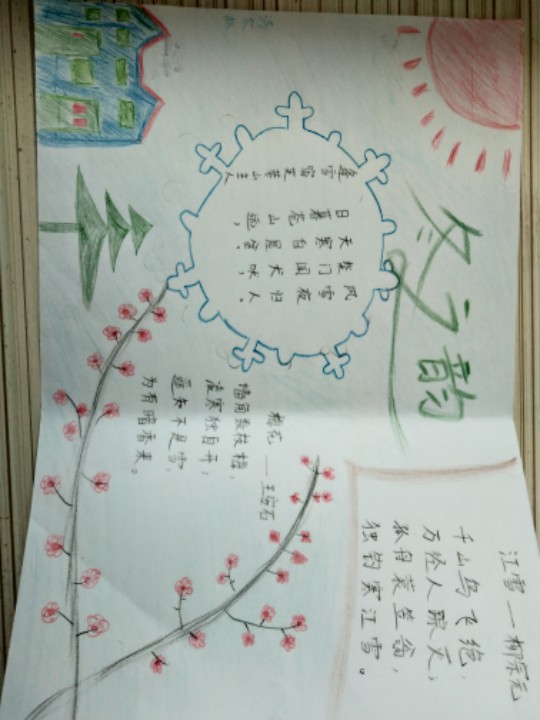 冬之韵
逢雪宿芙蓉山主人
日暮苍山远，
天寒白屋贫。
柴门闻犬吠，
风雪夜归人。
梅花——王安石
墙角数枝梅，
凌寒独自开；
遥知不是雪，
为有暗香来。
江雪—柳宗元
千山鸟飞绝，
万径人踪灭；
孤舟蓑笠翁，
独钓寒江雪。